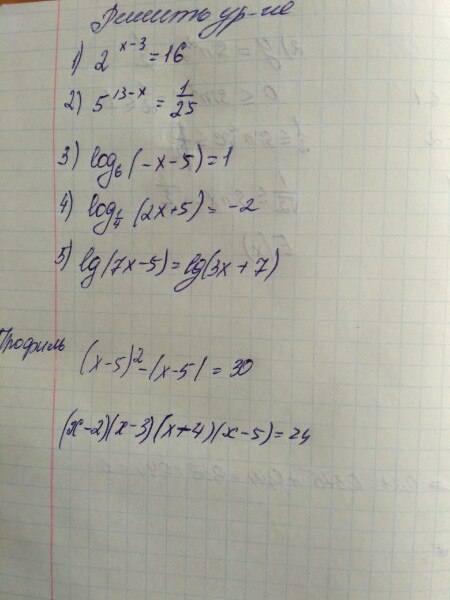 Решить ур-ие
1) 2^{x-3} = 16
2) 5^{13-x} = \frac{1}{25}
3) log_6 (-x-5) = 1
4) log_{\frac{1}{4}} (2x+5) = -2
5) lg(7x-5) = lg(3x+7)
Профиль
(x-5)^2 - (x-5) = 30
(x-2)(x-3)(x+4)(x-5) = 24